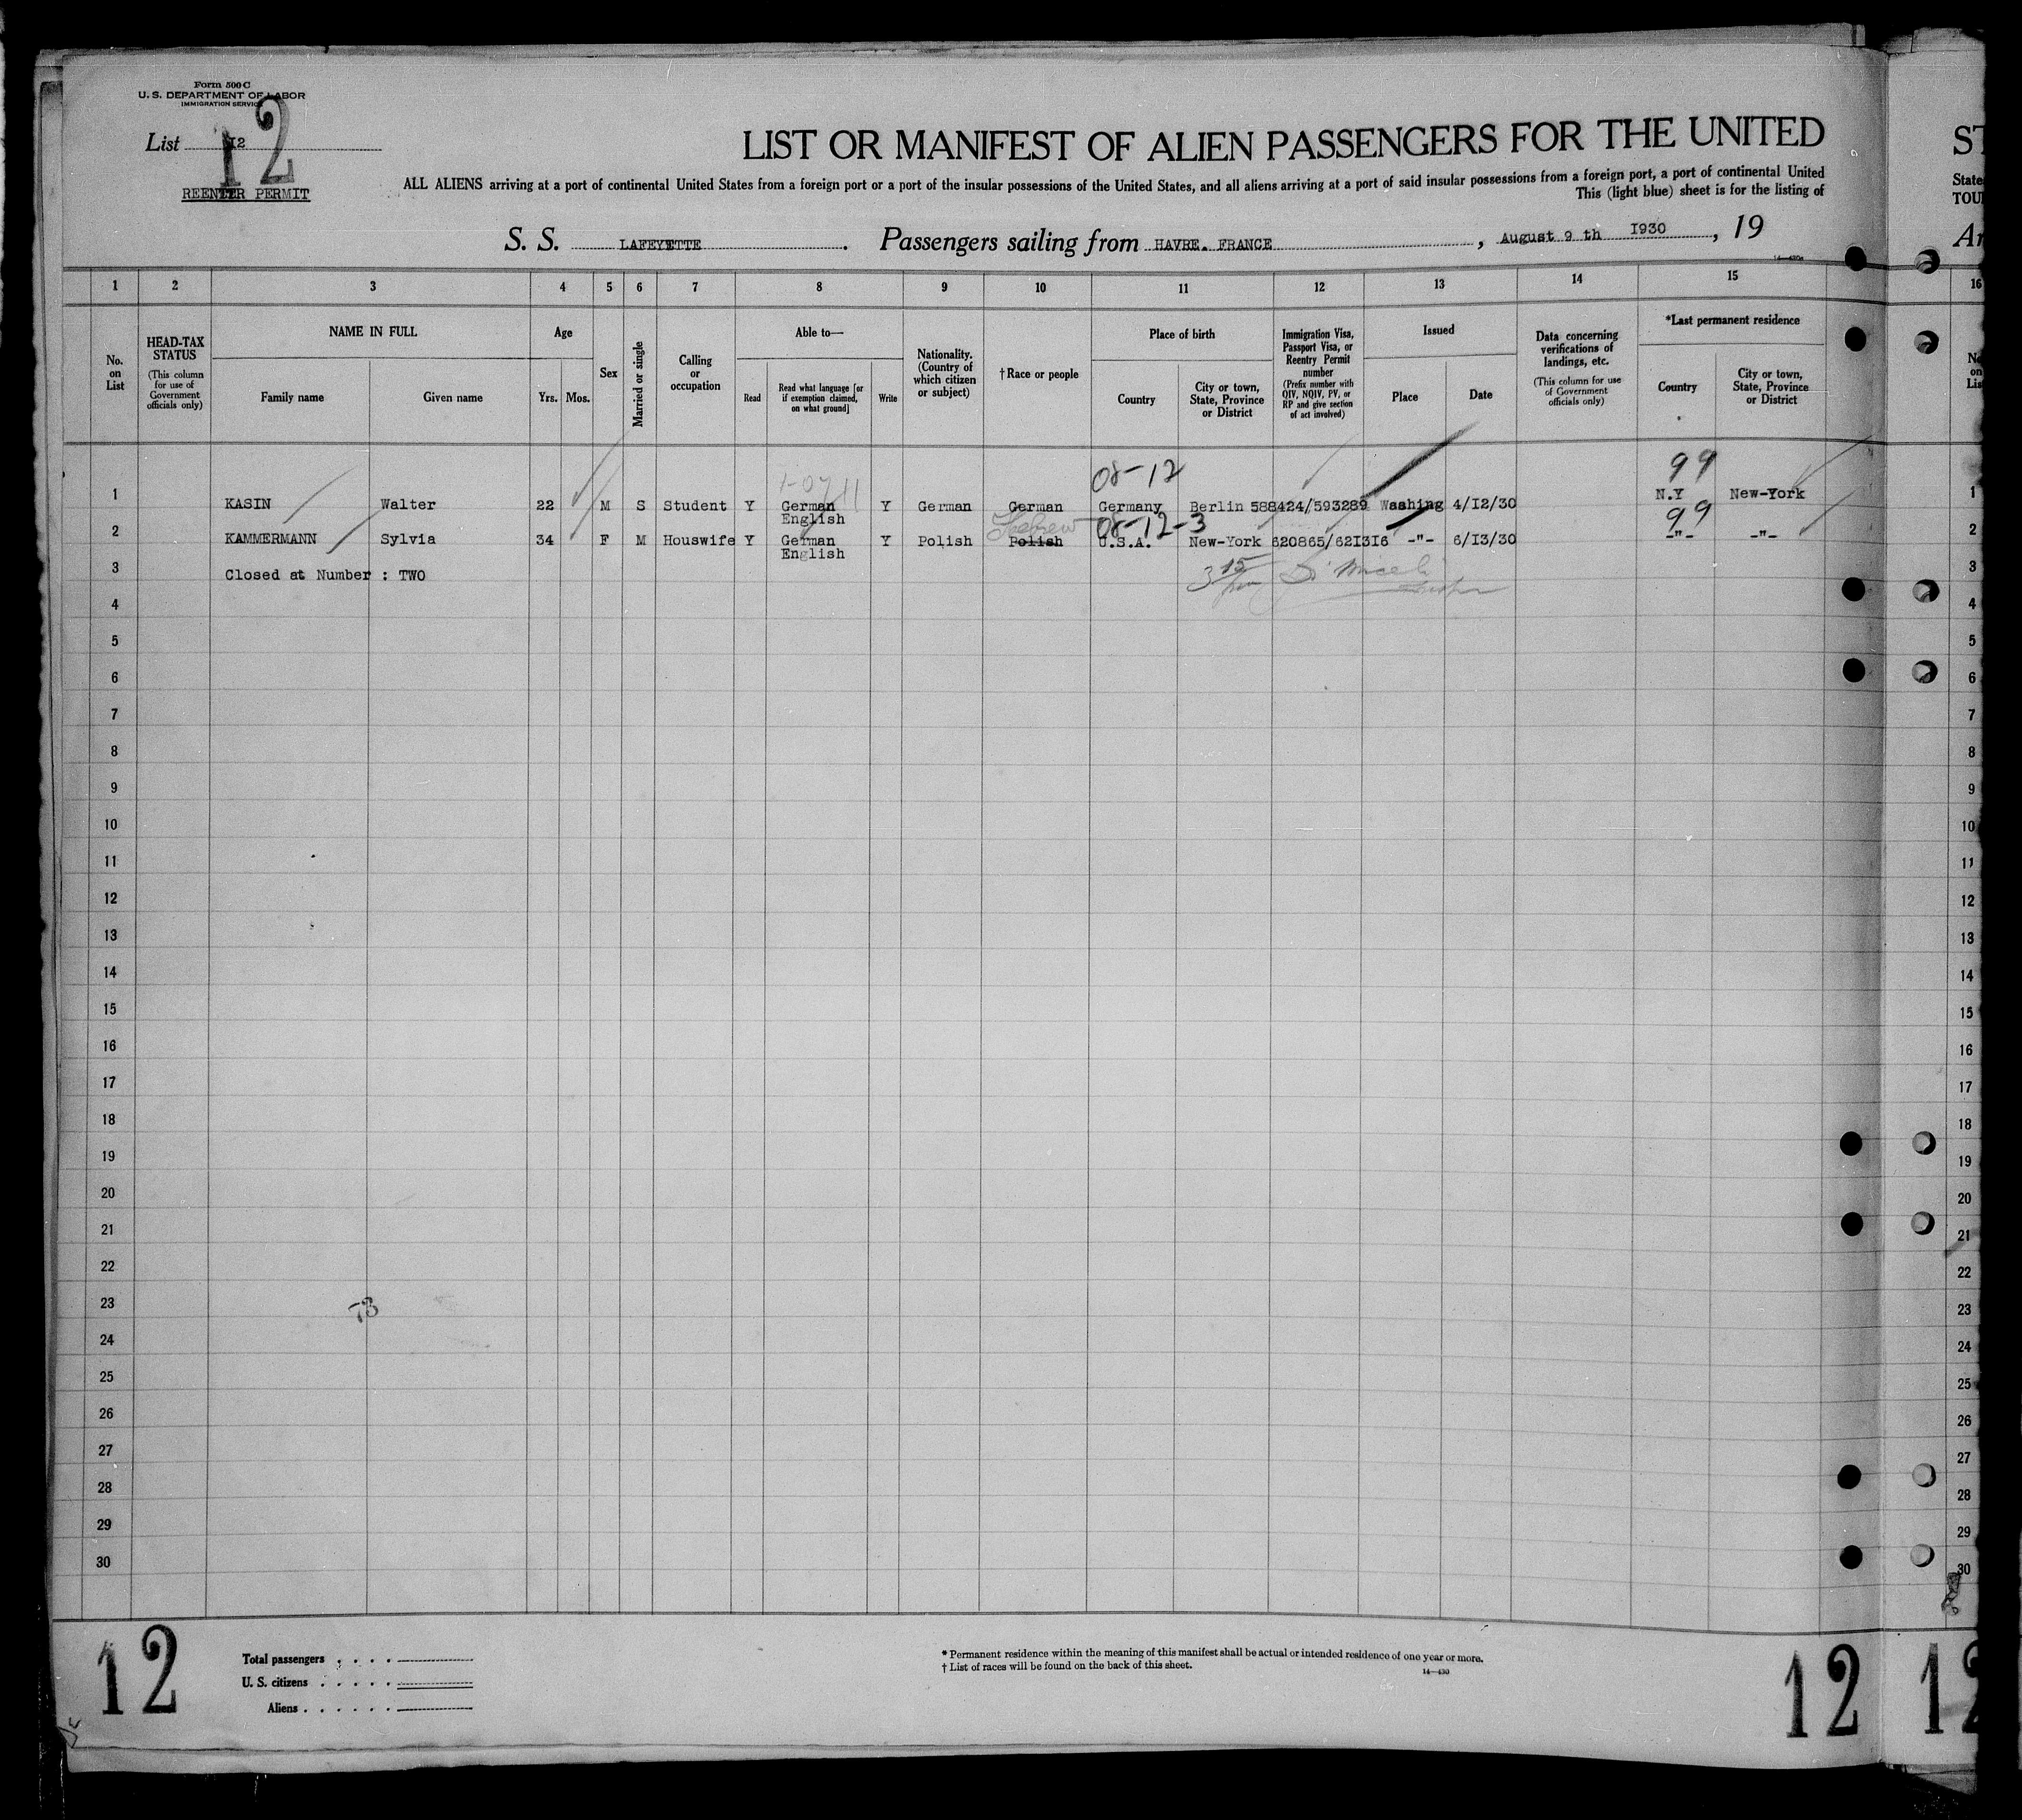 Form 500 C
U. S. DEPARTMENT OF LABOR
IMMIGRATION SERVICE
List 12
12
REENTER PERMIT
LIST OR MANIFEST OF ALIEN PASSENGERS FOR THE UNITED
ST
ALL ALIENS arriving at a port of continental United States from a foreign port or a port of the insular possessions of the United States, and all aliens arriving at a port of said insular possessions from a foreign port, a port of continental United
State
This (light blue) sheet is for the listing of
TOU
S. S. LAFEYETTE. Passengers sailing from HAVRE. FRANCE, August 9 th I930, 19
Ar
1 2 3 4 5 6 7 8 9 10 11 12 13 14 15 16
No. on List
HEAD-TAX STATUS
(This column for use of Government officials only)
NAME IN FULL
Family name
Given name
Age
Yrs. Mos.
Sex
Married or single
Calling or occupation
Able to—
Read
Read what language [or if exemption claimed, on what ground]
Write
Nationality. (Country of which citizen or subject)
†Race or people
Place of birth
Country
City or town, State, Province or District
Immigration Visa, Passport Visa, or Reentry Permit number
(Prefix number with QIV, NQIV, PV, or RP and give section of act involved)
Issued
Place
Date
Data concerning verifications of landings, etc.
(This column for use of Government officials only)
*Last permanent residence
Country
City or town, State, Province or District
08-12 99
1 KASIN Walter 22 M S Student Y German Y German German Germany Berlin 588424/593289 Washing 4/I2/30 N.Y New-York 1
English Hebrew 08-12-3 99
2 KAMMERMANN Sylvia 34 F M Houswife Y German Y Polish Polish U.S.A. New-York 620865/62I3I6 -"- 6/I3/30 -"- -"- 2
English
3 Closed at Number : TWO 3
4 4
5 5
6 6
7 7
8 8
9 9
10 10
11 11
12 12
13 13
14 14
15 15
16 16
17 17
18 18
19 19
20 20
21 21
22 22
23 23
24 24
25 25
26 26
27 27
28 28
29 29
30 30
12
Total passengers
U. S. citizens
Aliens
* Permanent residence within the meaning of this manifest shall be actual or intended residence of one year or more.
† List of races will be found on the back of this sheet.
14—430
12
12